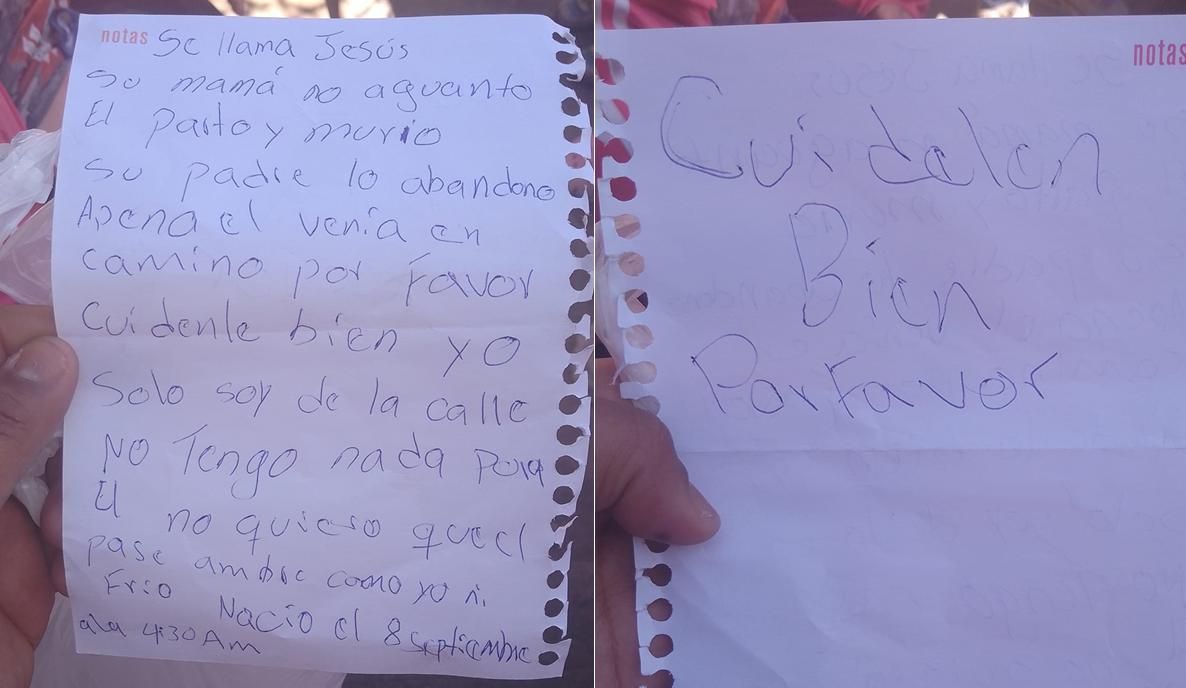 notas Se llama Jesús
Su mamá no aguanto
El parto y murio
Su padre lo abandono
Apena el venía en
camino por Favor
Cuidenle bien yo
Solo soy de la calle
NO Tengo nada para
El no quiero queel
pase ambre como yo ni
Frio Nacio el 8 septiembre
ala 4:30 AM
notas
Cuidelen
Bien
Por Favor